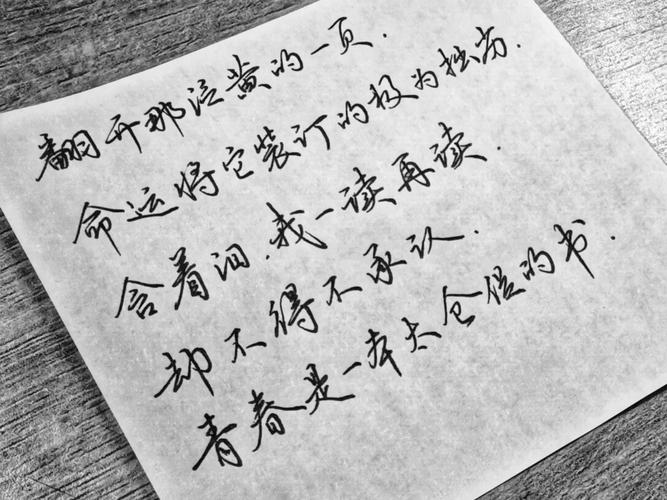 翻开那泛黄的一页.
命运将它装订的极为拙劣.
含着泪.我一读再读.
却不得不承认.
青春是一本太仓促的书.